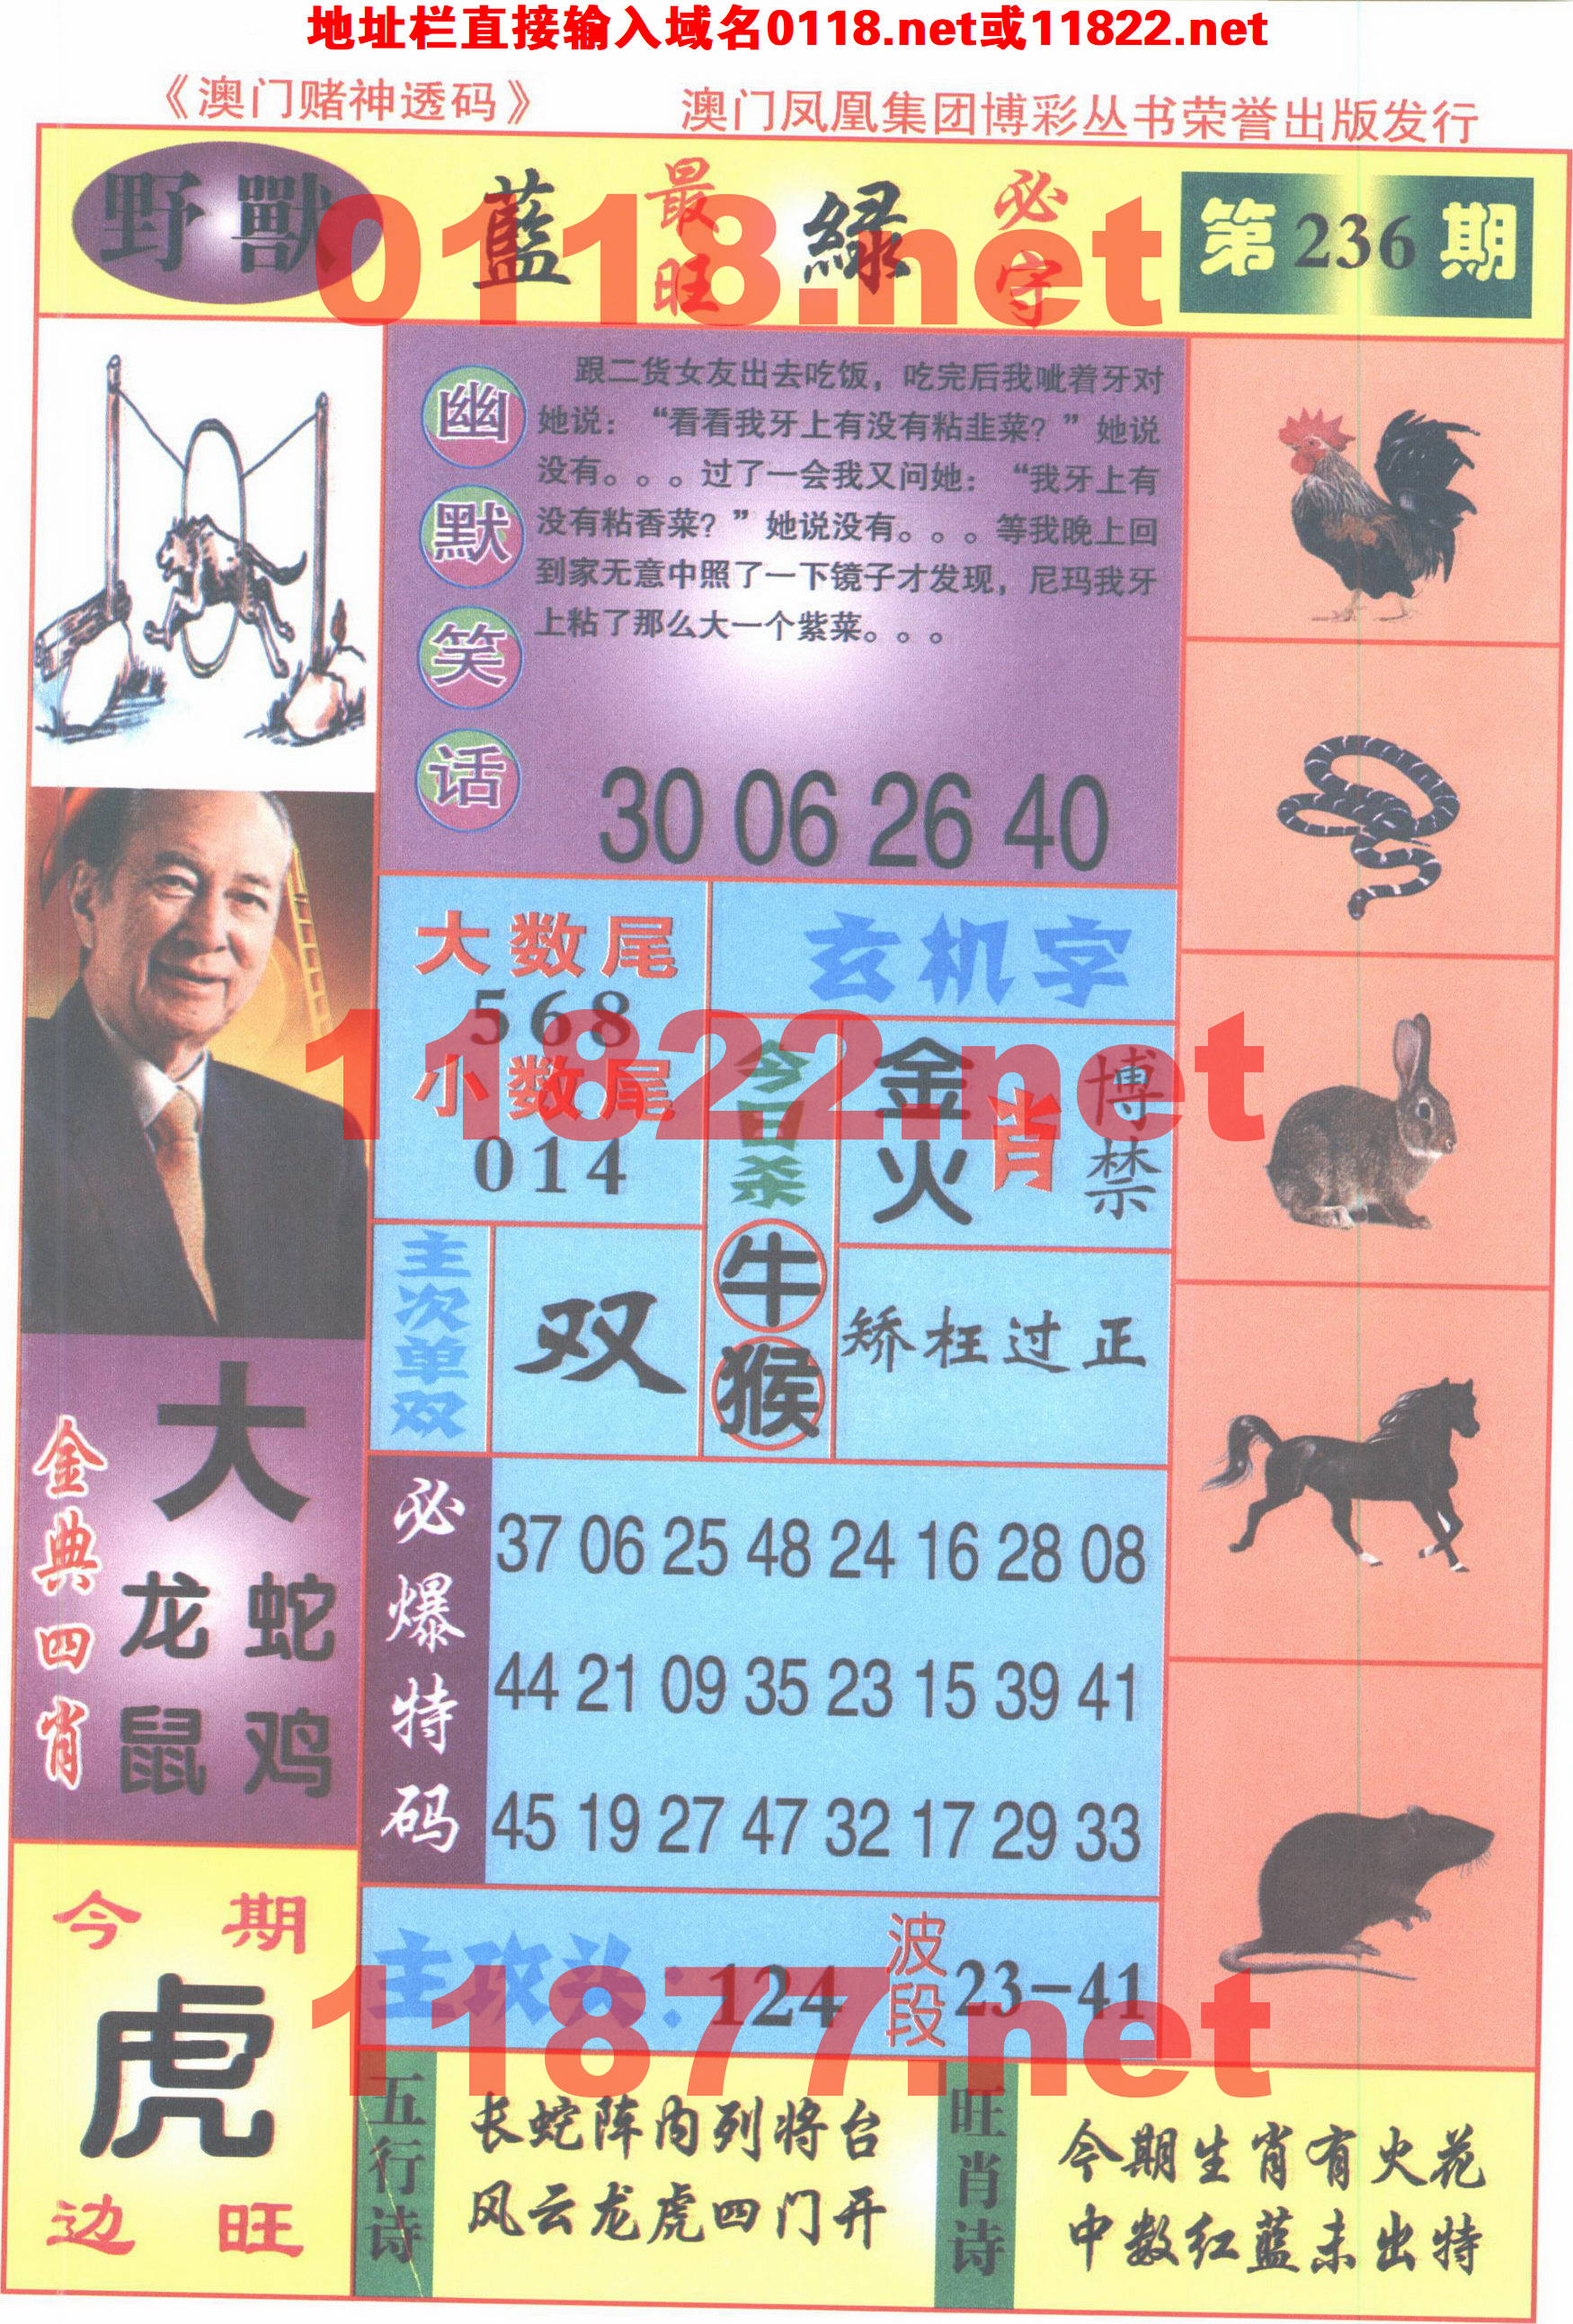 地址栏直接输入域名0118.net或11822.net
《澳门赌神透码》 澳门凤凰集团博彩丛书荣誉出版发行
野獸 藍 最旺 緑 必守 第236期
0118.net
幽默笑话
跟二货女友出去吃饭，吃完后我呲着牙对
她说：“看看我牙上有没有粘韭菜？”她说
没有。。。过了一会我又问她：“我牙上有
没有粘香菜？”她说没有。。。等我晚上回
到家无意中照了一下镜子才发现，尼玛我牙
上粘了那么大一个紫菜。。。
30 06 26 40
大数尾
568
小数尾
014
玄机字
11822.net
今日杀
牛
猴
金火
肖
博禁
主次单双
双
矫枉过正
金典四肖
大
龙 蛇
鼠 鸡
必爆特码
37 06 25 48 24 16 28 08
44 21 09 35 23 15 39 41
45 19 27 47 32 17 29 33
主攻头：124 波段 23-41
11877.net
今期
虎
边旺
五行诗
长蛇阵内列将台
风云龙虎四门开
旺肖诗
今期生肖有火花
中数红蓝未出特